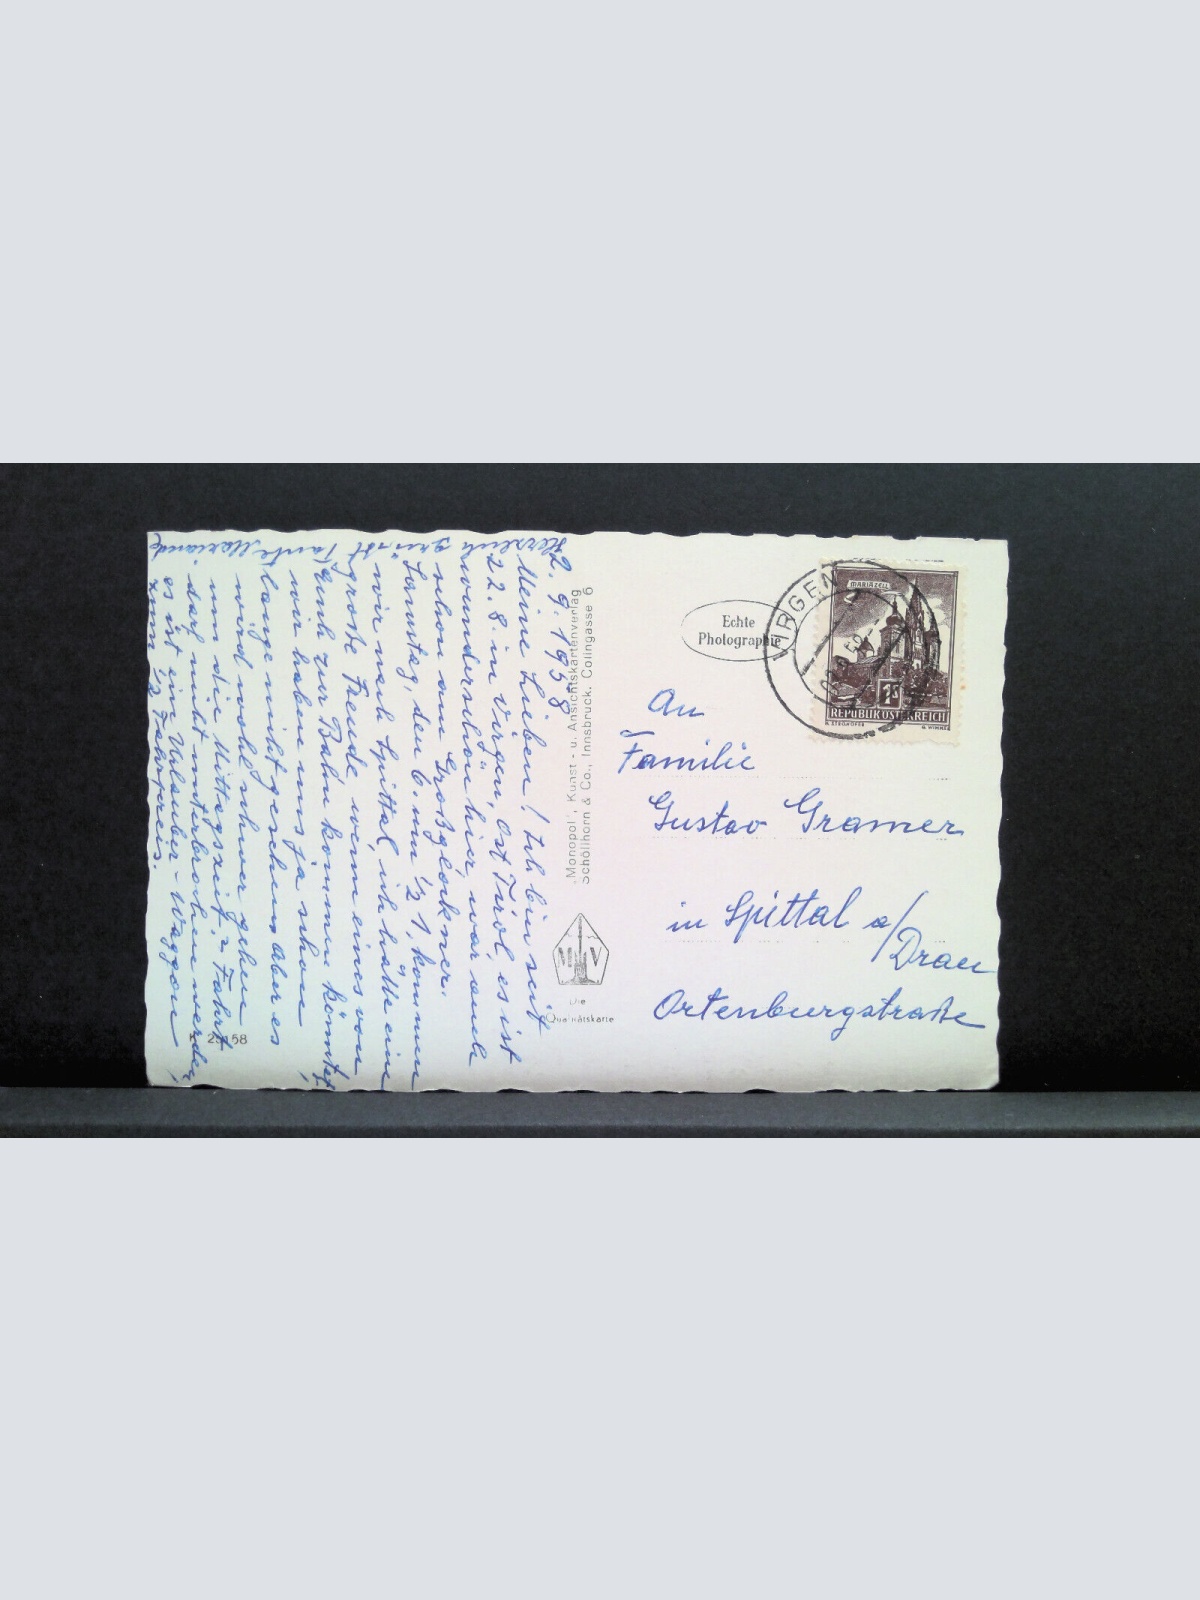 2. 9. 1958
Meine Lieben! Ich bin seit
22. 8. in Virgen, Ost Tirol, es ist
wunderschön hier, war auch
schon am Großglockner.
Samstag, den 6. um ½ 1, kommen
wir nach Spittal, ich hätte eine
große Freude, wenn eines von
Euch zur Bahn kommen könntet,
wir haben uns ja schon
lange nicht gesehen. Aber es
wird wohl schwer gehen
um die Mittagszeit. Fahrt
darf nicht unterbrochen werden,
es ist ein Urlauber-Waggon
zum ½ Fahrpreis.
Herzlich grüßt Tante Marianne
"Monopol", Kunst- u. Ansichtskartenverlag
Schöllhorn & Co., Innsbruck, Colingasse 6
MV
Die
Qualitätskarte
58
Echte
Photographie
VIRGEN
MARIAZELL
1S
REPUBLIK ÖSTERREICH
An
Familie
Gustav Gramer
in Spittal a/
Drau
Ortenburgstraße